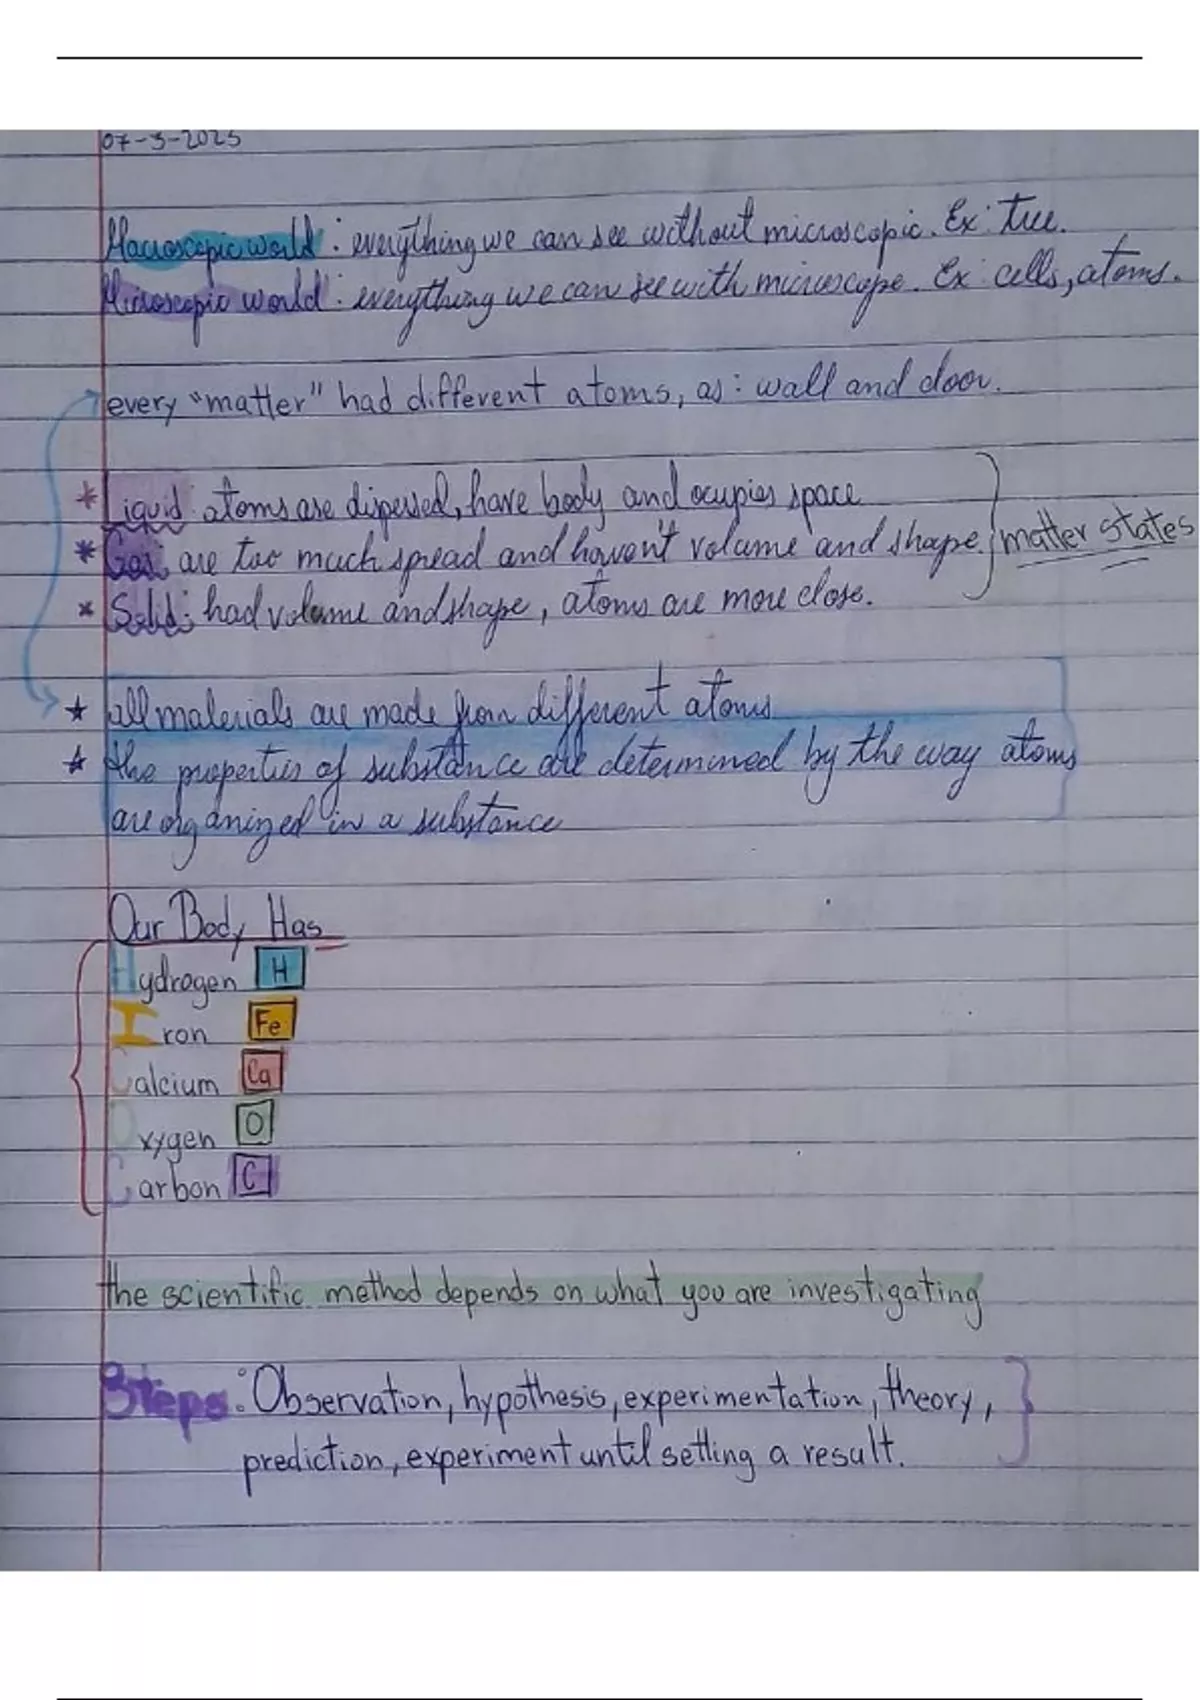 07-3-2025
Macroscopic world : everything we can see without microscopic. Ex: tree.
Microscopic world : everything we can see with microscope. Ex: cells, atoms.
every "matter" had different atoms, as: wall and door.
* Liquid: atoms are dispersed, have body and ocupies space
* Gas: are too much spread and haven't volume and shape.
matter states
* Solid: had volume and shape, atoms are more close.
★ all materials are made from different atoms
★ the properties of substance are determined by the way atoms
are organized in a substance
Our Body Has
Hydrogen H
Iron Fe
Calcium Ca
Oxygen O
Carbon C
the scientific method depends on what you are investigating
Steps: Observation, hypothesis, experimentation, theory,
prediction, experiment until setling a result.